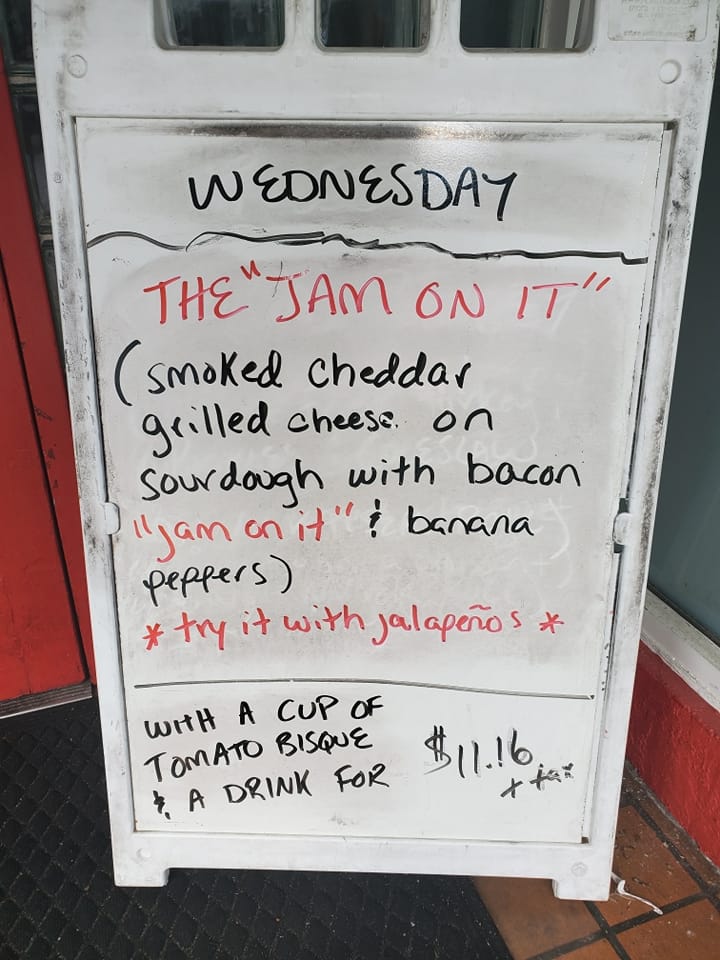 WEDNESDAY
THE "JAM ON IT"
(smoked cheddar
grilled cheese on
sourdough with bacon
"jam on it" & banana
peppers)
* try it with jalapeños *
WITH A CUP OF
TOMATO BISQUE
& A DRINK FOR
$11.16
+ tax